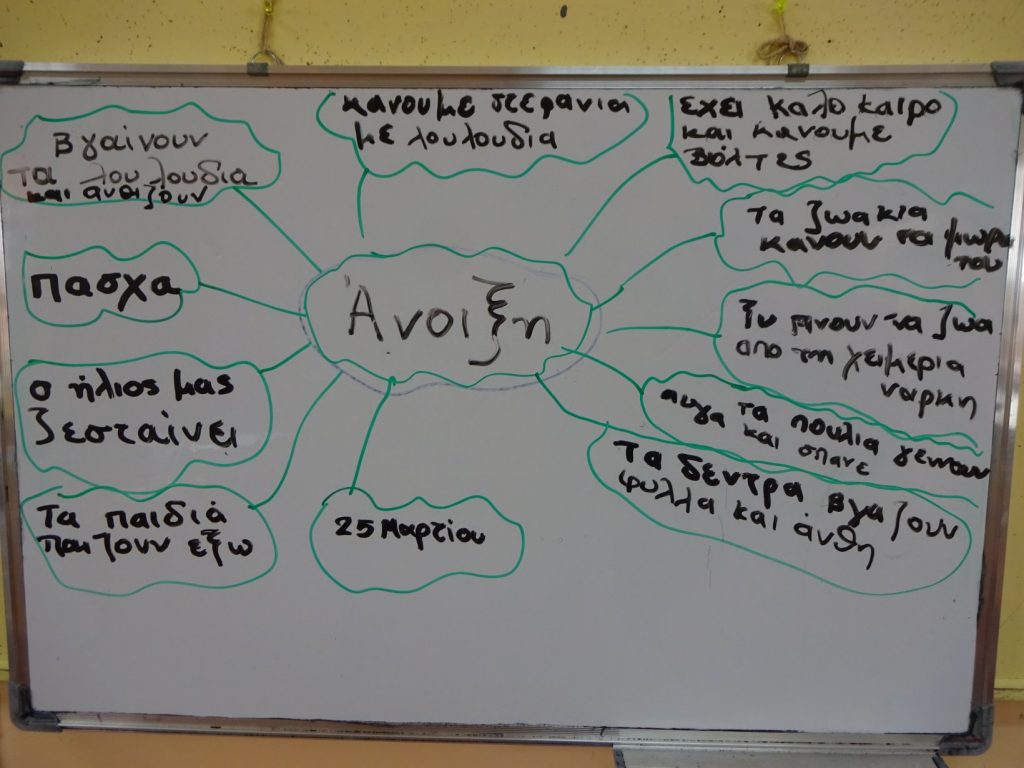 Βγαίνουν
τα λουλουδια
και ανθιζουν
κανουμε στεφανια
με λουλουδια
εχει καλο καιρο
και κανουμε
βολτες
Τα ζωακια
κανουν τα μωρα
του
πασχα
Άνοιξη
ξυπνουν τα ζωα
απο τη χειμερια
ναρκη
ο ήλιος μας
ζεσταίνει
τα πουλια γεννουν
αυγα και σπανε
Τα δεντρα βγαζουν
φυλλα και άνθη
Τα παιδιά
παιζουν εξω
25 Μαρτίου